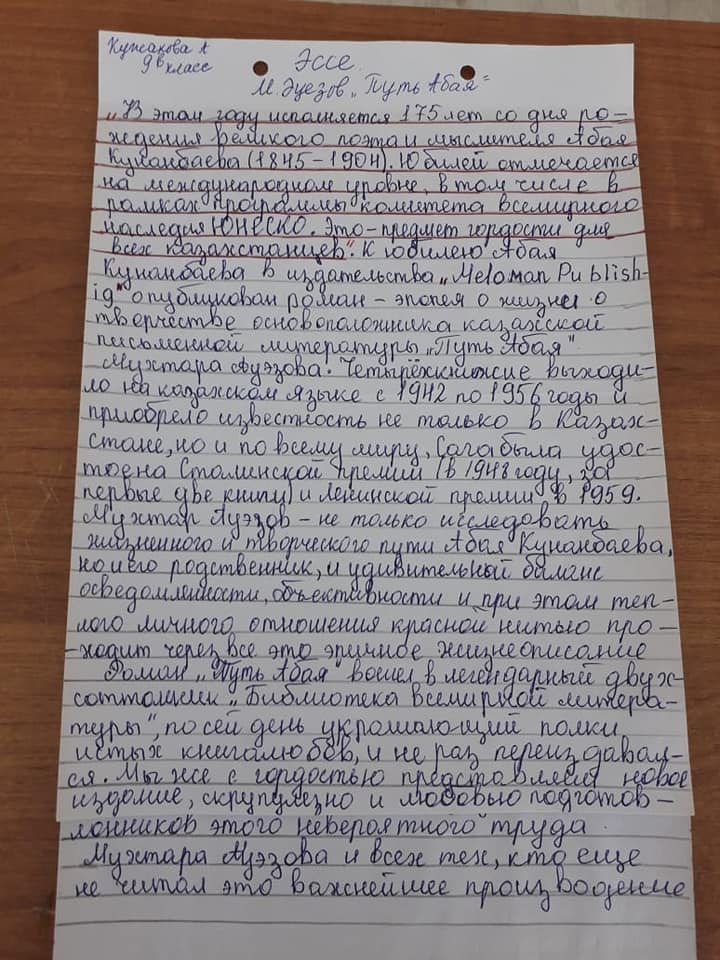 Кужакова А
9в класс
Эссе.
М. Эуезов „Путь Абая“
„В этом году исполняется 175 лет со дня ро-
ждения великого поэта и мыслителя Абая
Кунанбаева (1845-1904). Юбилей отмечается
на международном уровне, в том числе в
рамках программы комитета всемирного
наследия ЮНЕСКО. Это-предмет гордости для
всех казахстанцев“. К юбилею Абая
Кунанбаева в издательства „Meloman Publish-
ig“ опубликован роман - эпопея о жизни о
творчестве основоположника казахской
письменной литературы „Путь Абая“
Мухтара Ауэзова. Четырёхкнижие выходи-
ло на казахском языке с 1942 по 1956 годы и
приобрело известность не только в Казах-
стане, но и по всему миру, Сага была удос-
тоена Сталинской премии (в 1948 году, за
первые две книги) и Ленинской премии, в 1959.
Мухтар Ауэзов - не только исследовать
жизненного и творческого пути Абая Кунанбаева,
но и его родственник, и удивительный баланс
осведомленности, объективности и при этом теп-
лого личного отношения красной нитью про-
-ходит через все это эпичное жизнеописание
Роман „Путь Абая“ вошел в легендарный двух-
соттомник „Библиотека всемирной литера-
туры“, по сей день украшающий полки
истых книгалюбов, и не раз переиздавал-
ся. Мы же с гордостью представляем новое
издание, скрупулезно и любовью подготов-
лонников этого невероятного труда.
Мухтара Ауэзова и всех тех, кто еще
не читал это важнейшее произведение